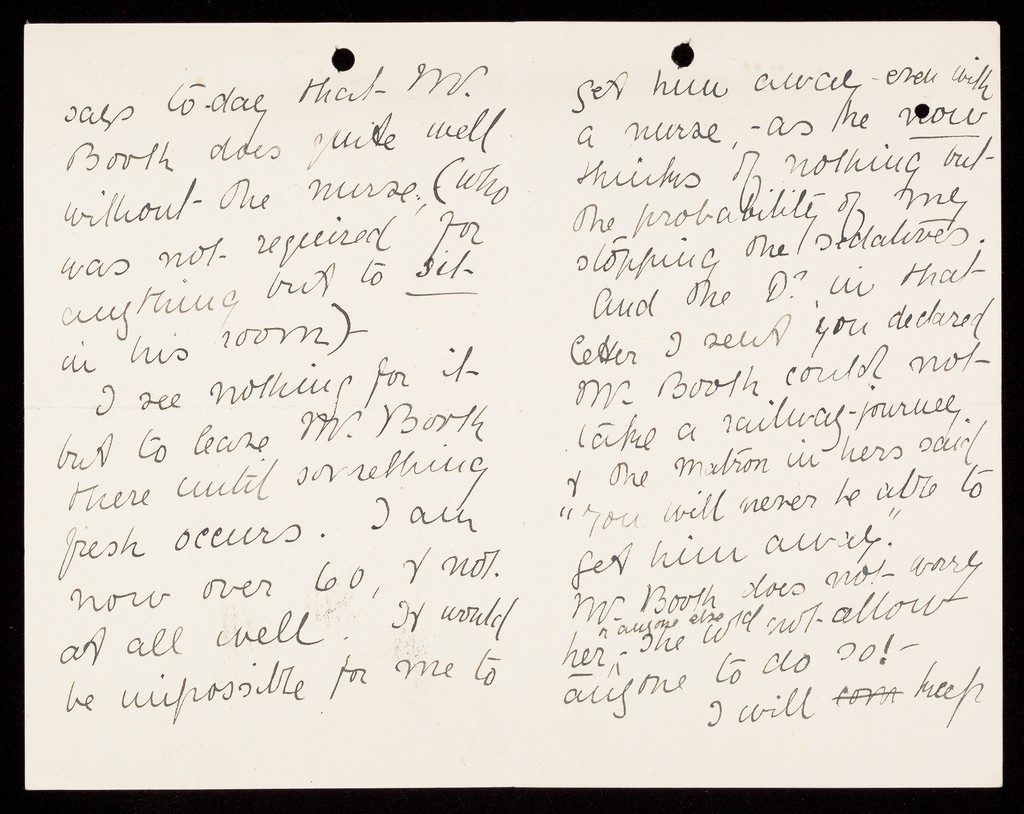 says to-day that Mr.
Booth does quite well
without the nurse, (who
was not required for
anything but to sit
in his room)-
I see nothing for it
but to leave Mr. Booth
there until something
fresh occurs. I am
now over 60, & not
at all well. It would
be impossible for me to
get him away - even with
a nurse, - as he now
thinks of nothing but
the probability of my
stopping the sedatives.
And the Dr. in that
letter I sent you declared
Mr. Booth could not
take a railway-journey.
& the matron in hers said
"you will never be able to
get him away."
Mr. Booth does not worry
or anyone else
her, - she wld not allow
anyone to do so! -
I will com keep